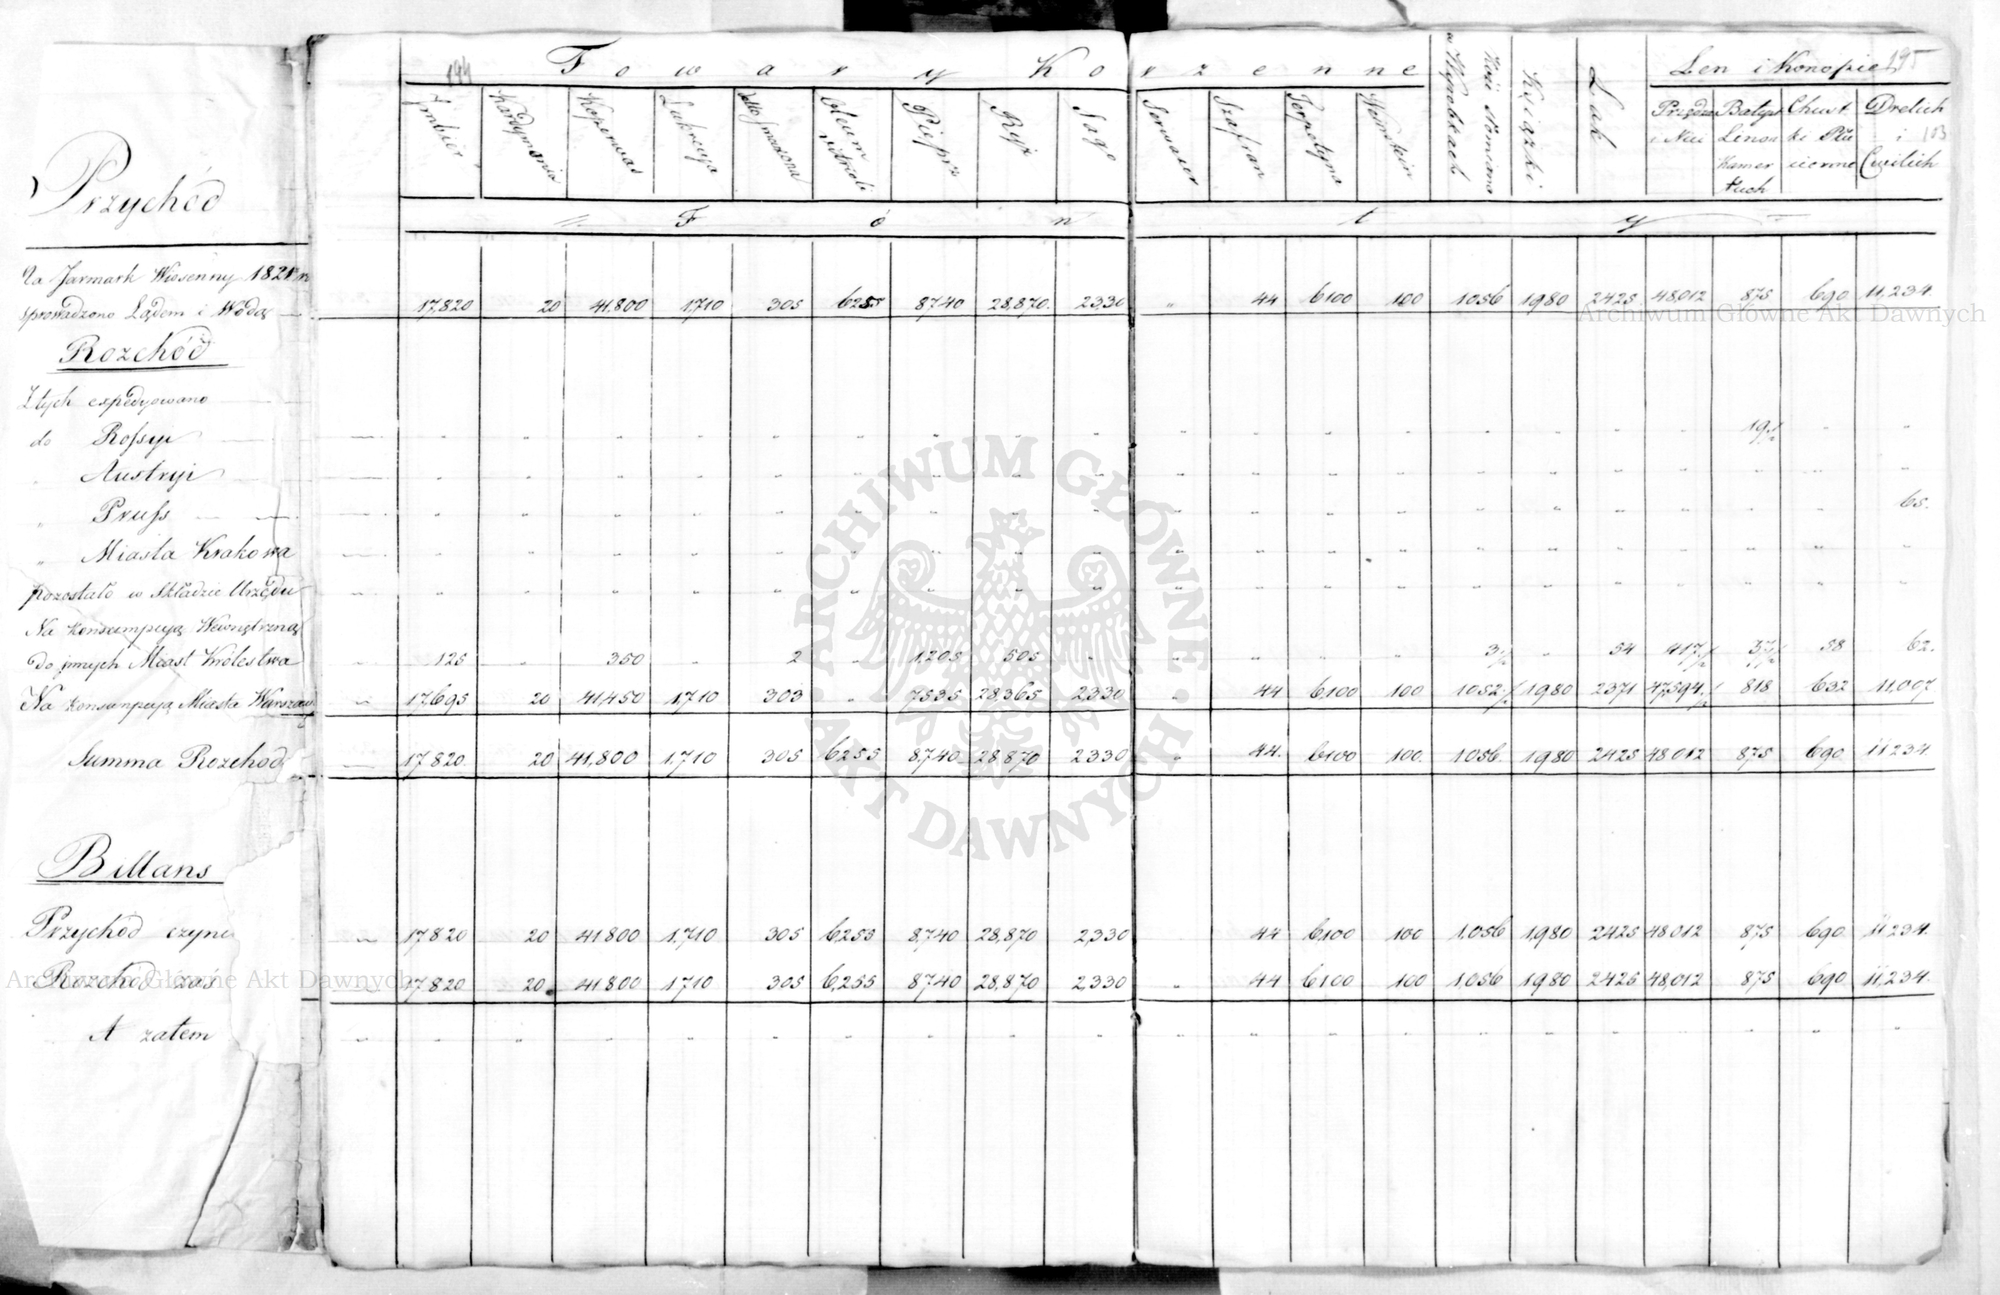 194
195
Towary Korzenne
Len i Konopie
Imbier
Kardymonia
Koperwas
Lukrecya
detto smażona
Oleum Vitrioli
Pieprz
Ryż
Sago
Szafran
Terpetyna
Weinstein
Kość słoniowa w Wyrobkach
Książki
Lak
Przędza i Nici
Batyst Linon Kamer tuch
Chust ki Płó cienne
Drelich i Cwilich
103
Funty
Przychód
Na Jarmark Wiosenny
sprowadzono Lądem i Wodą 17,820 20 41,800 1,710 305 6255 8740 28,870. 2330 " 44 6100 100 1056 1980 2425 48,012 875 690 11,234.
Rozchód
Z tych expedyowano
do Rossyi 19 1/2 " "
" Austryi
" Pruss 65.
" Miasta Krakowa
Pozostało w Składzie Urzędu
Na Konsumpcyą Wewnętrzną
Do innych Miast Królestwa 125 " 350 " 2 " 1,205 505 " " " " " 3 1/2 " 54 417 1/2 37 1/2 58 62.
Na Konsumpcyą Miasta Warszawy 17,695 20 41,450 1,710 303 " 7535 28,365 2330 " 44 6100 100 1052 1/2 1980 2371 47,594 1/2 818 632 11,007
Summa Rozchodu 17820 20 41,800 1,710 305 6255 8,740 28,870 2330 " 44. 6100 100. 1056. 1980 2425 48,012 875 690 11234
Billans
Przychód czyni 17820 20 41800 1,710 305 6,255 8,740 28,870 2,330 44 6100 100 1,056 1,980 2425 48,012 875 690 11234.
Rozchód zaś 17820 20 41800 1,710 305 6,255 8740 28,870 2,330 " 44 6100 100 1,056 1,980 2425 48,012 875 690 11,234.
A zatem
Archiwum Główne Akt Dawnych
Archiwum Główne Akt Dawnych
ARCHIWUM GŁÓWNE AKT DAWNYCH